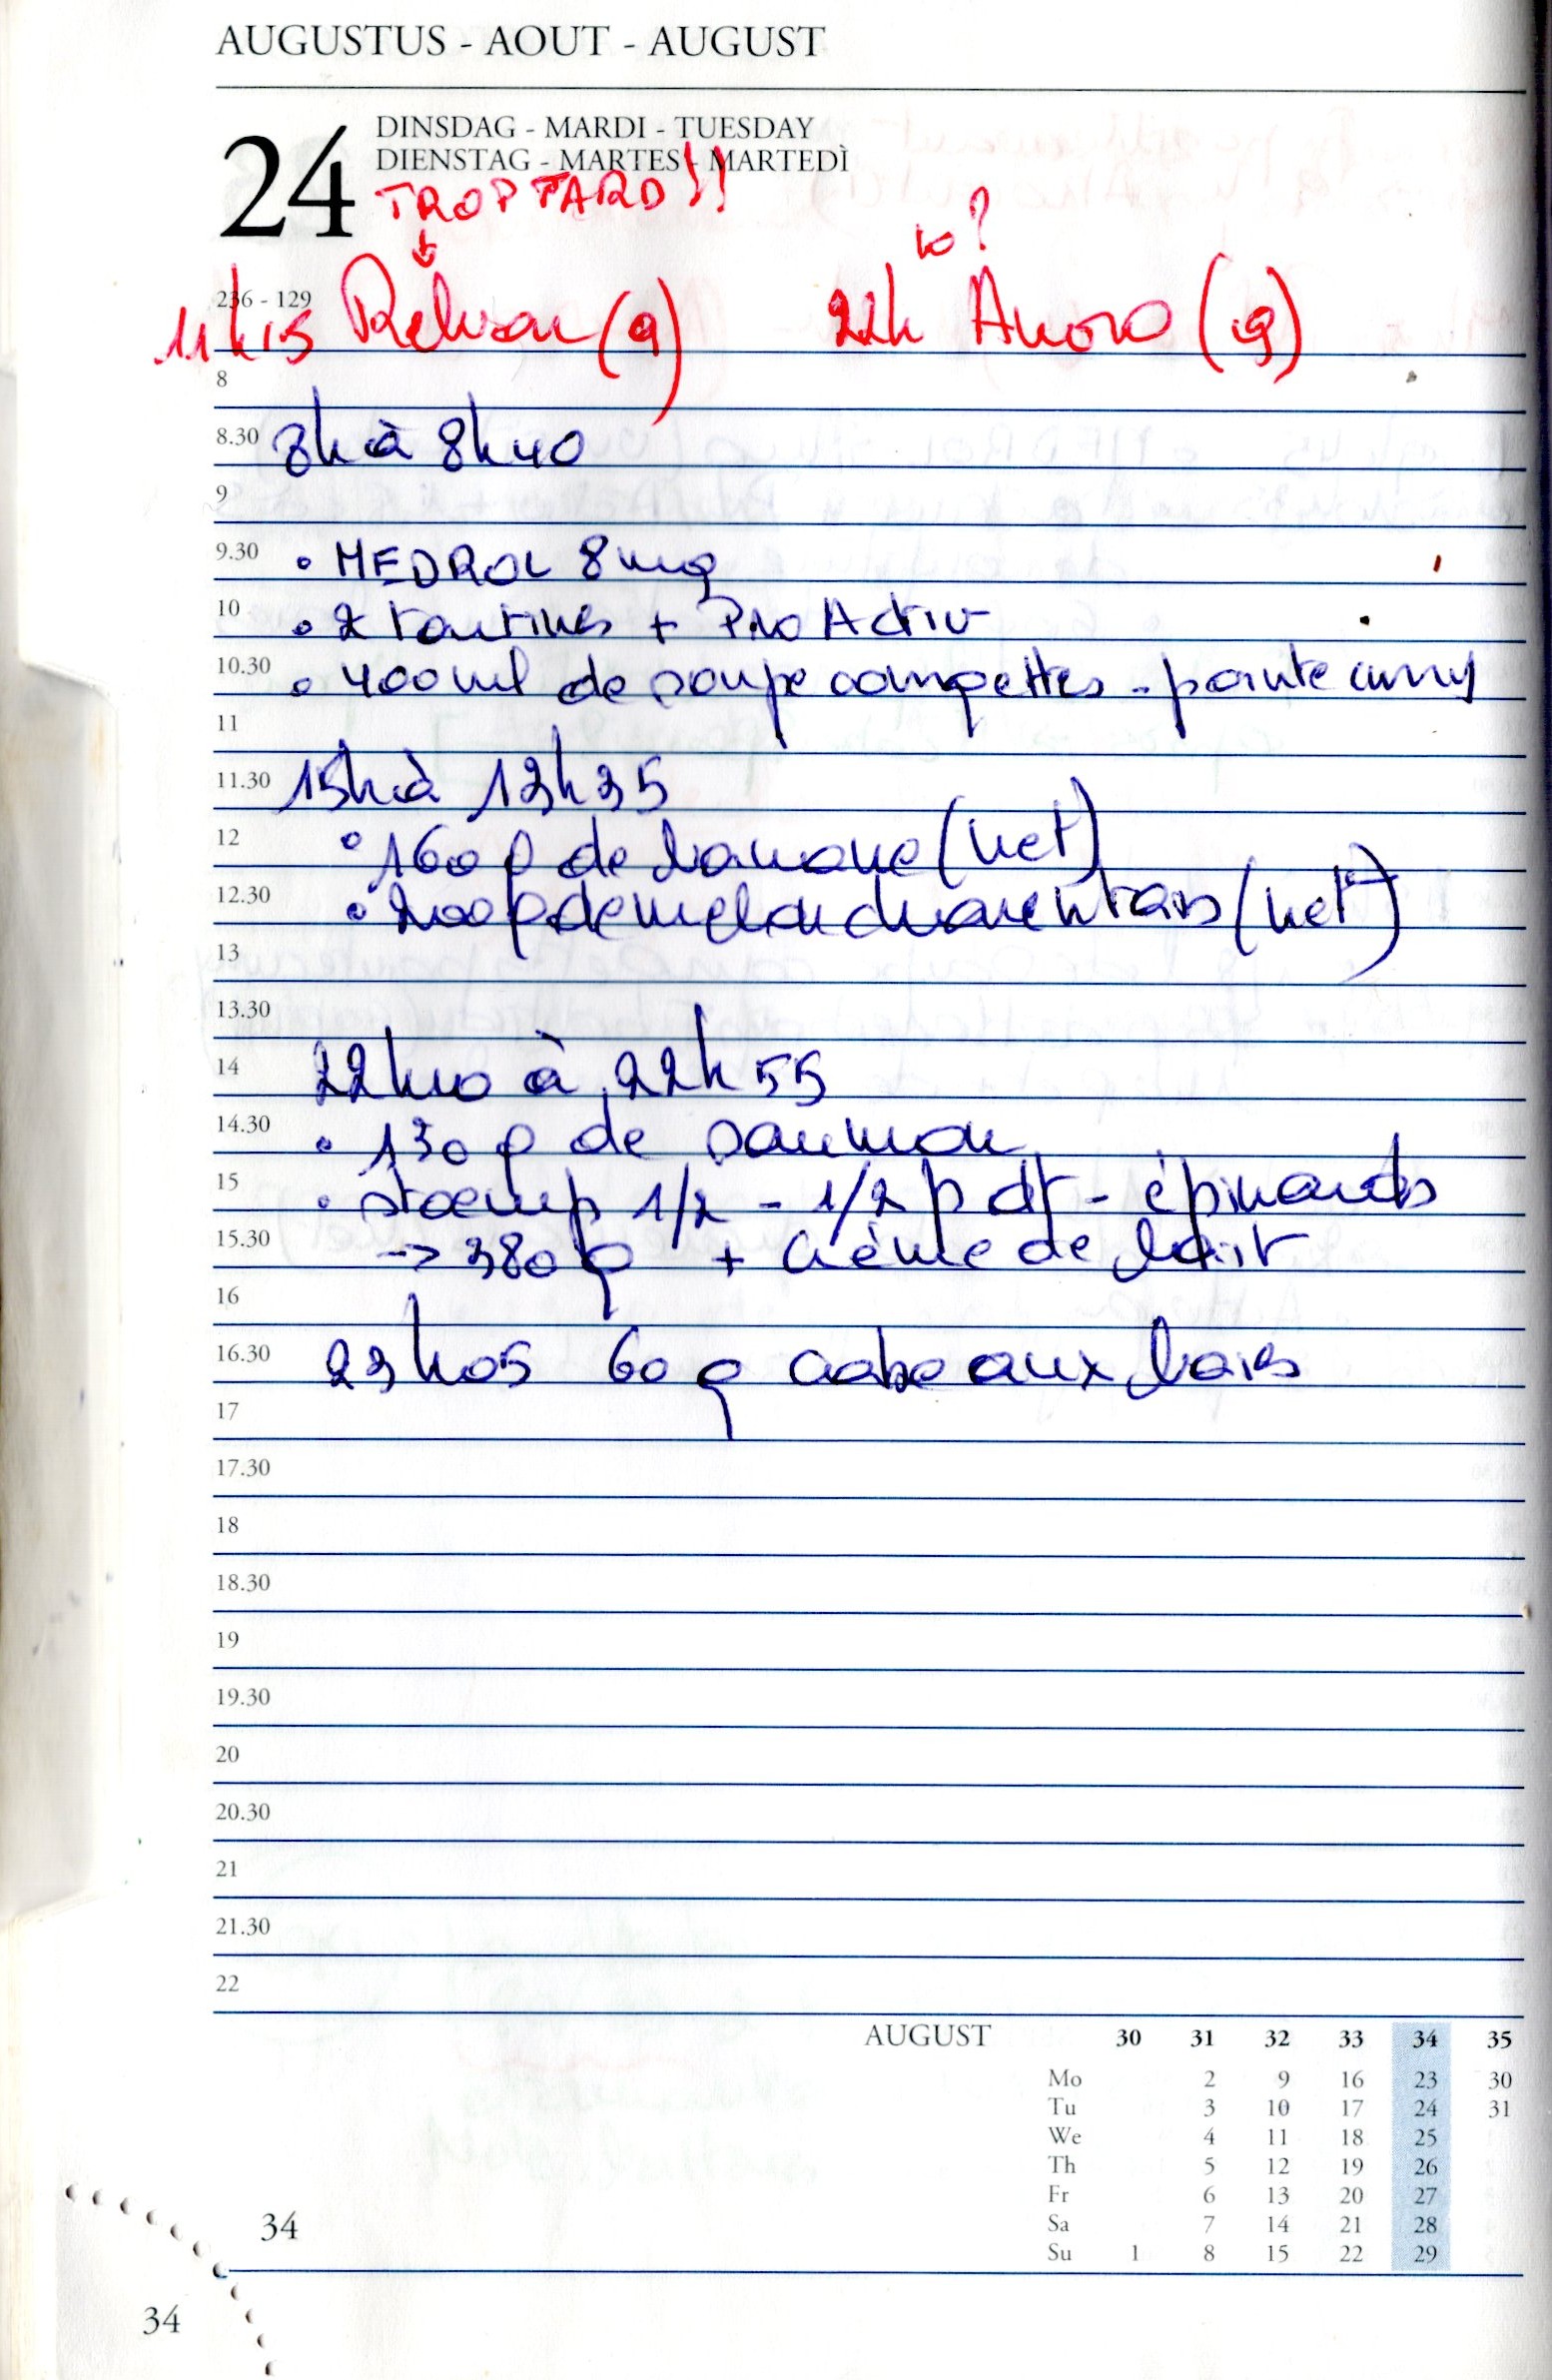 AUGUSTUS - AOUT - AUGUST
24
DINSDAG - MARDI - TUESDAY
DIENSTAG - MARTES - MARTEDÌ
TROP TARD !!
10 ?
236 - 129
11h15 Relvar (9) 22h Anoro (9)
8
8.30 8h à 8h40
9
9.30 • MEDROL 8 mg
10 • 2 tartines + Pro Activ
10.30 • 400 ml de soupe courgettes - pointe curry
11
11.30 15h à 15h35
12 • 160 g de banane (net)
12.30 • 200 g de melon charentais (net)
13
13.30
14 22h10 à 22h55
14.30 • 130 g de saumon
15 • stoemp 1/2 - 1/2 pdt - épinards
15.30 -> 380 g + crème de lait
16
16.30 23h05 60 g
17
17.30
18
18.30
19
19.30
20
20.30
21
21.30
22
AUGUST 30 31 32 33 34 35
Mo 2 9 16 23 30
Tu 3 10 17 24 31
We 4 11 18 25
Th 5 12 19 26
Fr 6 13 20 27
Sa 7 14 21 28
Su 1 8 15 22 29
34
34